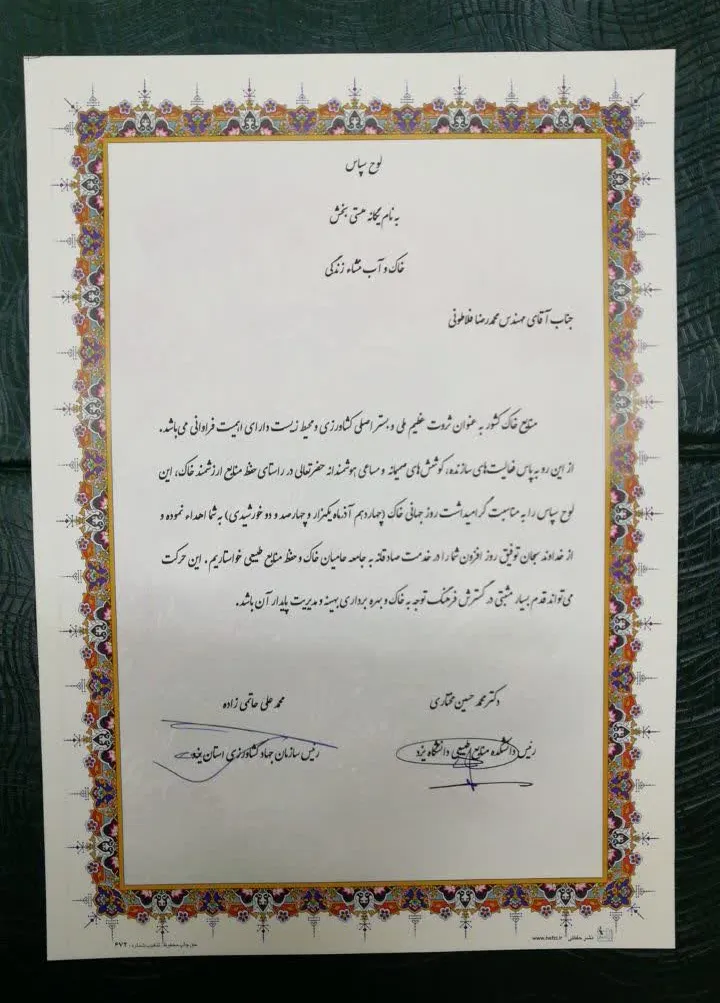 لوح سپاس
به نام یگانه هستی بخش
خاک و آب منشاء زندگی
جناب آقای مهندس محمدرضا فلاطونی
منابع خاک کشور به عنوان ثروت عظیم ملی و بستر اصلی کشاورزی و محیط زیست دارای اهمیت فراوانی می‌باشد.
از این رو به پاس فعالیت‌های سازنده، کوشش‌های صمیمانه و مساعی هوشمندانه حضرتعالی در راستای حفظ منابع ارزشمند خاک، این
لوح سپاس را به مناسبت گرامیداشت روز جهانی خاک (چهاردهم آذرماه یکهزار و چهارصد و دو خورشیدی) به شما اهداء نموده و
از خداوند سبحان توفیق روز افزون شما را در خدمت صادقانه به جامعه حامیان خاک و حفظ منابع طبیعی خواستاریم. این حرکت
می‌تواند قدم بسیار مثبتی در گسترش فرهنگ توجه به خاک و بهره برداری بهینه و مدیریت پایدار آن باشد.
دکتر محمد حسین مختاری
رئیس دانشکده منابع طبیعی دانشگاه یزد
محمد علی حاتمی زاده
رئیس سازمان جهاد کشاورزی استان یزد
نشر حفظی
حق چاپ محفوظ
۶۷۲